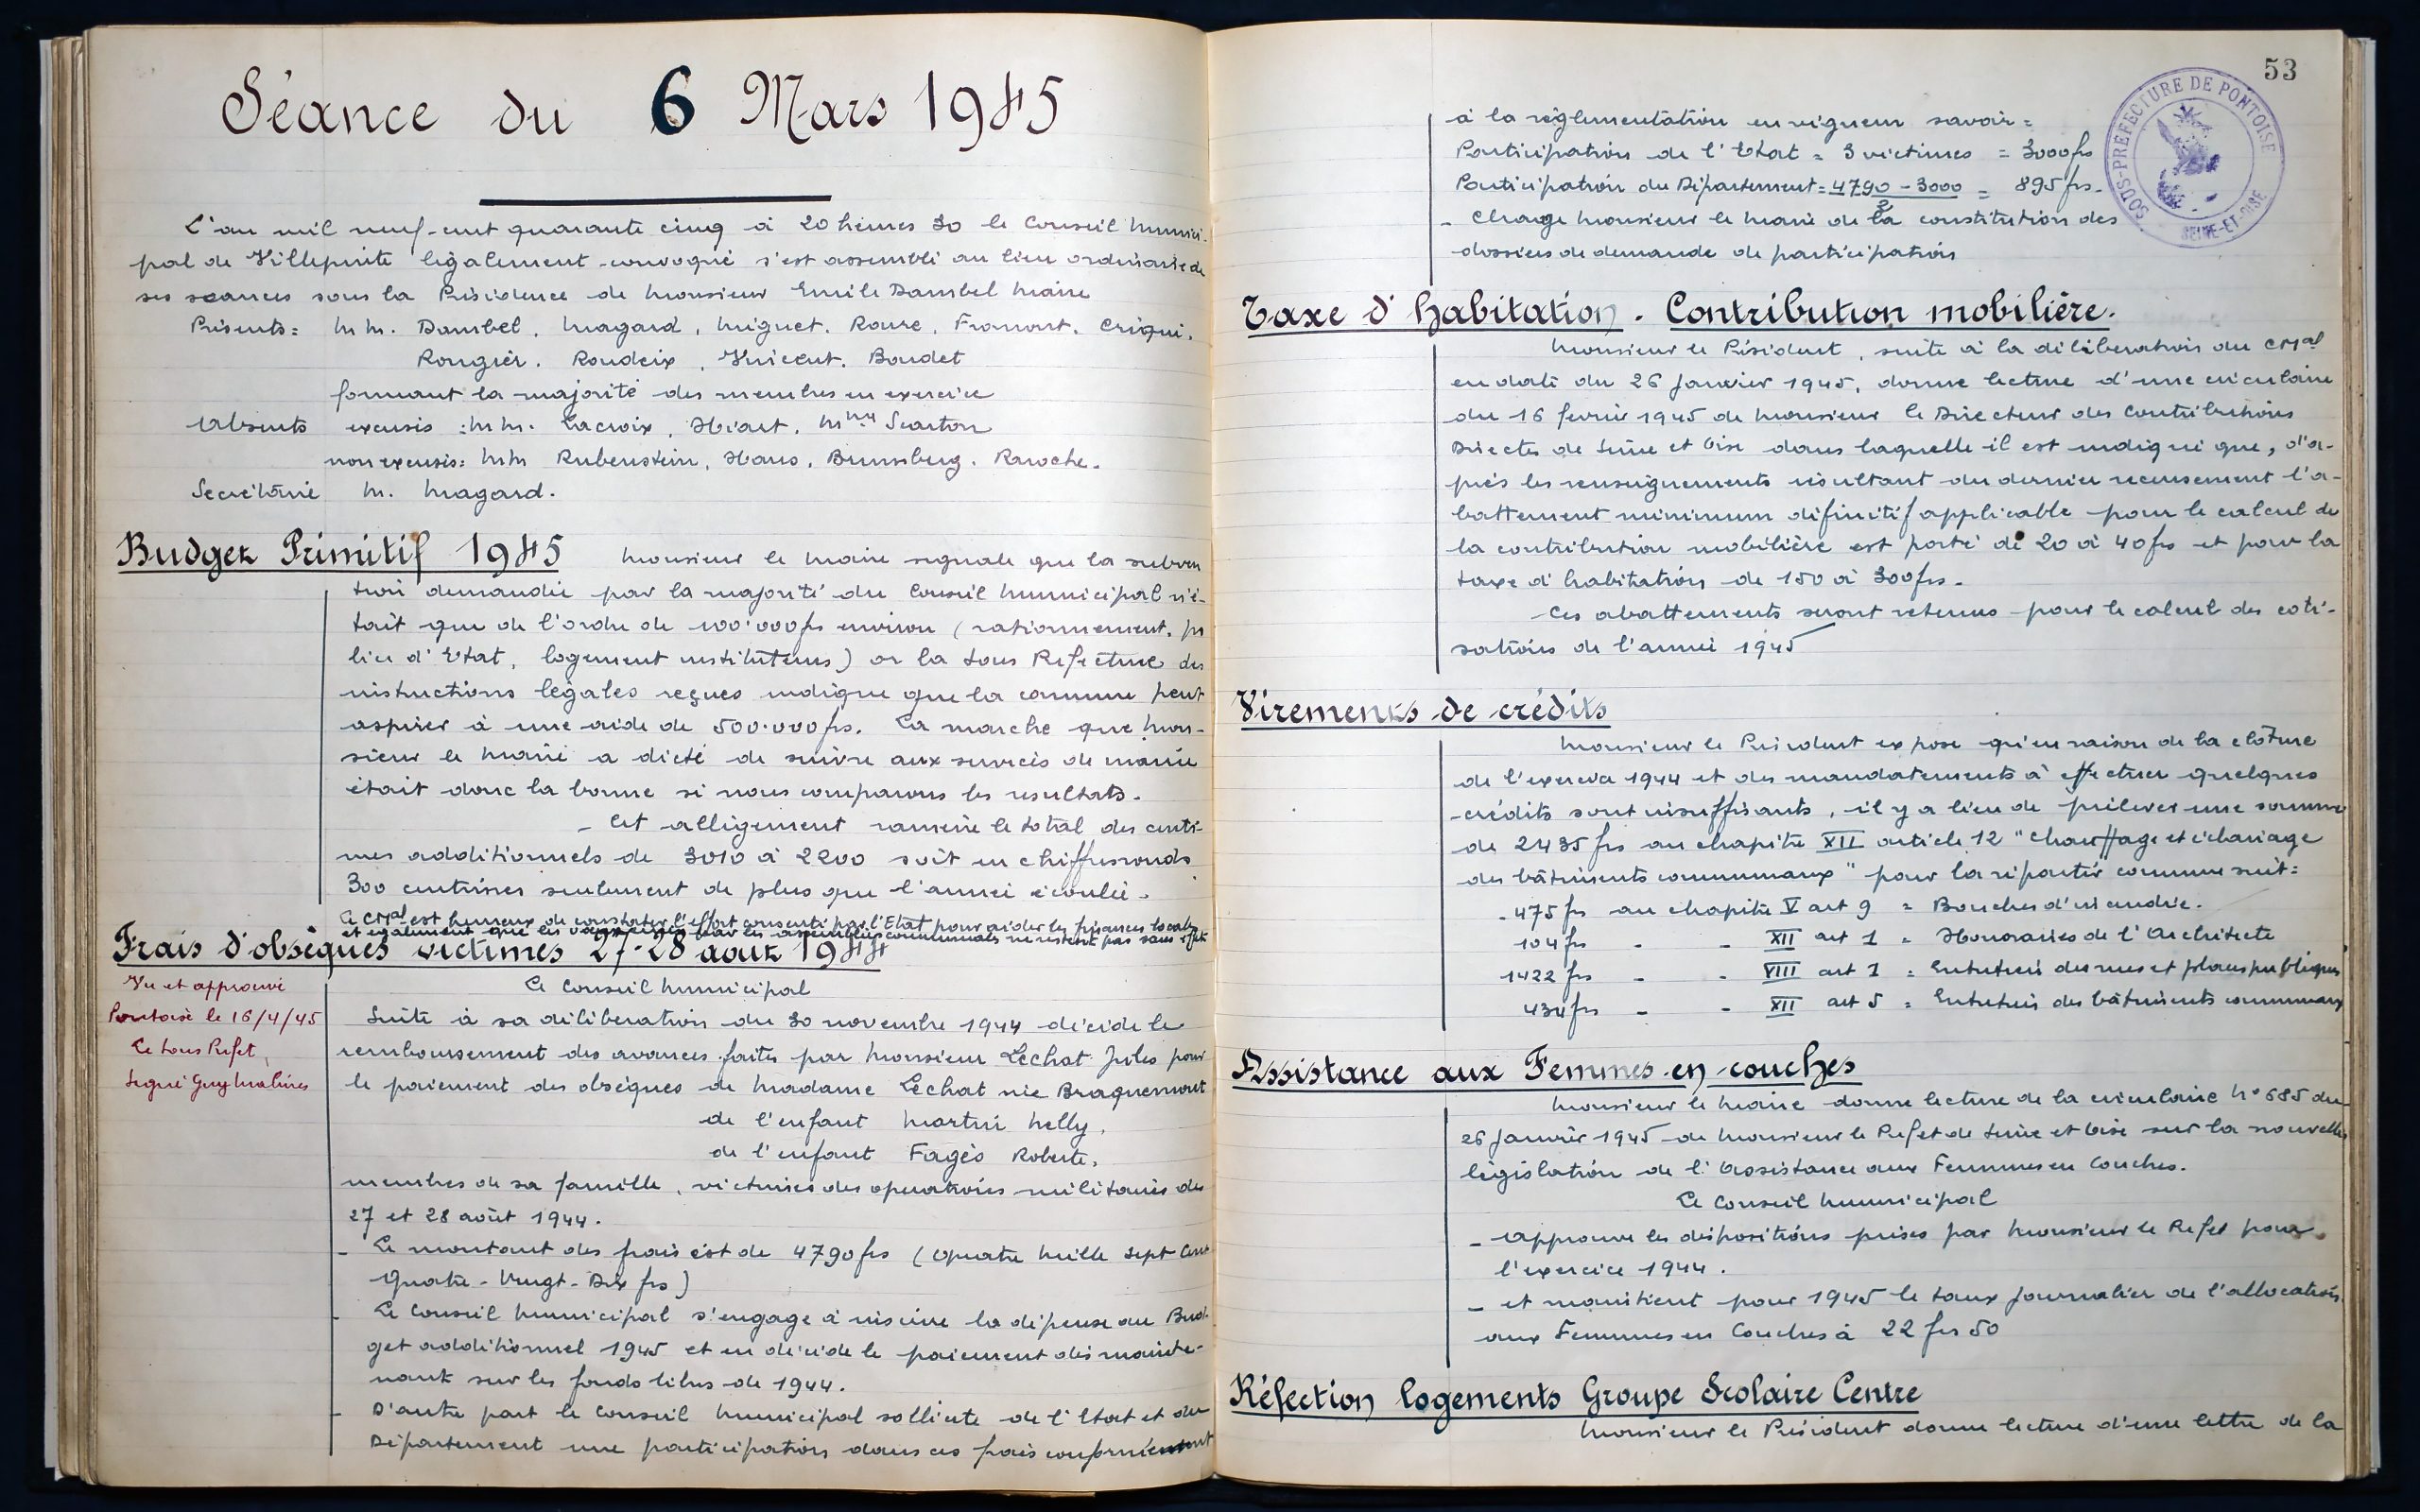 Séance du 6 Mars 1945
L'an mil neuf-cent quarante cinq à 20 heures 30 le Conseil Munici-
pal de Villepinte légalement convoqué s'est assemblé au lieu ordinaire de
ses séances sous la Présidence de Monsieur Emile Dambel Maire
Présents : M.M. Dambel, Magard, Miguet, Roure, Fromont, Criqui,
Rougier, Roudeix, Vincent, Boudet
formant la majorité des membres en exercice
Absents excusés : M.M. Lacroix, Hiart, Mme Scarton
non excusés : MM Rubenstein, Haus, Brunsburg, Raroche.
Secrétaire M. Magard.
Budget Primitif 1945 Monsieur le Maire signale que la subven
tion demandée par la majorité du Conseil Municipal n'é-
tait que de l'ordre de 100.000 frs environ (rationnement, po
lice d'Etat, logement instituteurs) or la Sous Préfecture des
instructions légales reçues indique que la commune peut
aspirer à une aide de 500.000 frs. La marche que Mon-
sieur le Maire a dicté de suivre aux services de mairie
était donc la bonne si nous comparons les résultats.
- Cet allègement ramène le total des centi-
mes additionnels de 3010 à 2200 soit en chiffres ronds
300 centimes seulement de plus que l'année écoulée.
Le CMal est heureux de constater l'effort consenti par l'Etat pour aider les finances locales
et également que les vœux émis par les assemblées communales ne restent pas sans effet
Frais d'obsèques victimes 27-28 août 1944
Vu et approuvé
Pontoise le 16/4/45
Le Sous Préfet,
Signé Guy Malines
Le Conseil Municipal
Suite à sa délibération du 30 novembre 1944 décide le
remboursement des avances faites par Monsieur Lechat Jules pour
le paiement des obsèques de Madame Lechat née Braquemont
de l'enfant Martin Nelly,
de l'enfant Fagès Roberte,
membres de sa famille, victimes des opérations militaires des
27 et 28 août 1944.
- Le montant des frais est de 4790 frs (Quatre Mille Sept Cent
Quatre-Vingt-Dix frs)
- Le Conseil Municipal s'engage à inscrire la dépense au Bud-
get additionnel 1945 et en décide le paiement dès mainte-
nant sur les fonds libres de 1944.
- D'autre part le Conseil Municipal sollicite de l'Etat et du
Département une participation dans ces frais conformément
53
SOUS-PREFECTURE DE PONTOISE
SEINE-ET-OISE
à la réglementation en vigueur savoir =
Participation de l'Etat = 3 victimes = 3000 frs
Participation du Département = 4790 - 3000 = 895 frs.
2
- Charge Monsieur le Maire de la constitution des
dossiers de demande de participation
Taxe d'habitation. Contribution mobilière.
Monsieur le Président, suite à la délibération du CMal
en date du 26 Janvier 1945, donne lecture d'une circulaire
du 16 février 1945 de Monsieur le Directeur des Contributions
Directes de Seine et Oise dans laquelle il est indiqué que, d'a-
près les renseignements résultant du dernier recensement l'a-
battement minimum définitif applicable pour le calcul de
la contribution mobilière est porté de 20 à 40 frs et pour la
taxe d'habitation de 150 à 300 frs.
Ces abattements seront retenus pour le calcul des coti-
sations de l'année 1945
Virements de crédits
Monsieur le Président expose qu'en raison de la clôture
de l'exercice 1944 et des mandatements à effectuer quelques
crédits sont insuffisants, il y a lieu de prélever une somme
de 2435 frs au chapitre XII article 12 "Chauffage et éclairage
des bâtiments communaux" pour la répartir comme suit :
- 475 frs au chapitre V art 9 = Bouches d'incendie.
104 frs - - XII art 1 = Honoraires de l'Architecte
1422 frs - - VIII art 1 = Entretien des rues et places publiques
434 frs - - XII art 5 = Entretien des bâtiments communaux
Assistance aux Femmes en couches
Monsieur le Maire donne lecture de la circulaire N° 685 du
26 Janvier 1945 de Monsieur le Préfet de Seine et Oise sur la nouvelle
législation de l'Assistance aux Femmes en Couches.
Le Conseil Municipal
- approuve les dispositions prises par Monsieur le Préfet pour
l'exercice 1944.
- et maintient pour 1945 le taux journalier de l'allocation
aux Femmes en Couches à 22 frs 50
Réfection logements Groupe Scolaire Centre
Monsieur le Président donne lecture d'une lettre de la